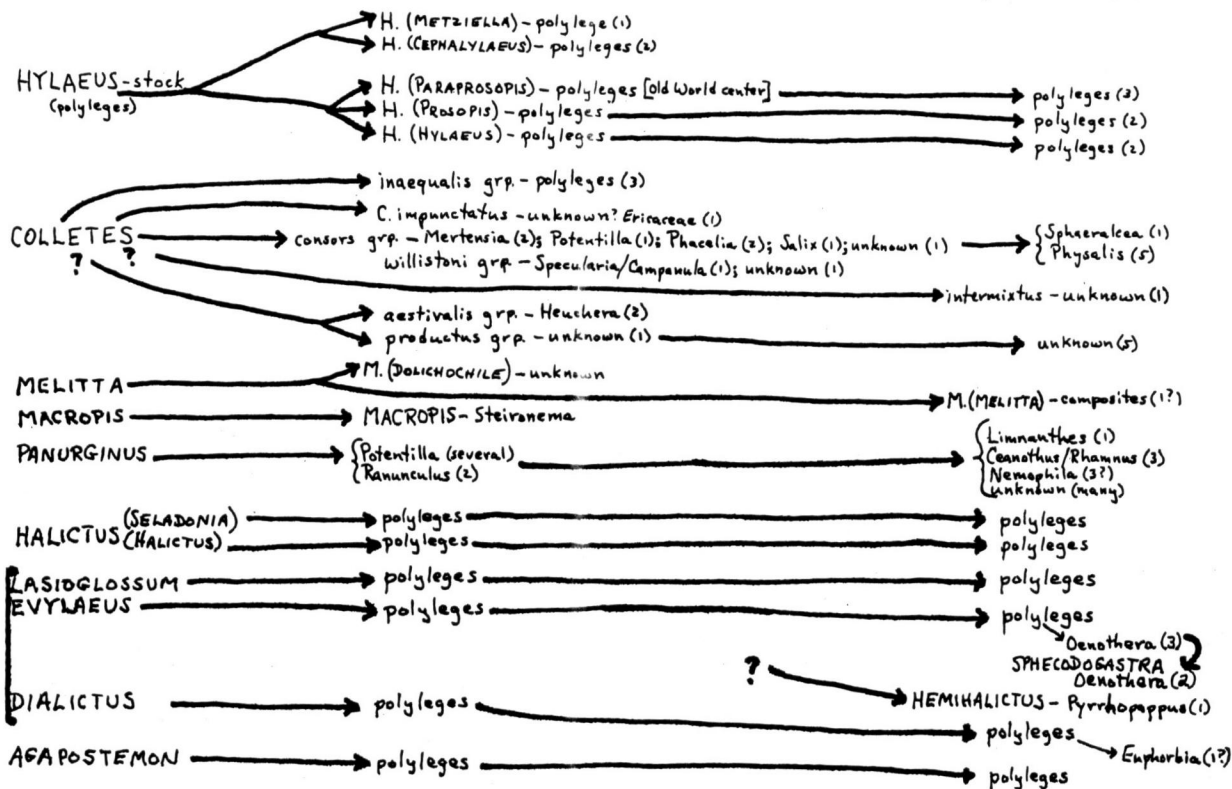 H. (METZIELLA) – polylege (1)
H. (CEPHALYLAEUS) – polyleges (2)
HYLAEUS – stock
(polyleges)
H. (PARAPROSOPIS) – polyleges [Old World center]
polyleges (3)
H. (PROSOPIS) – polyleges
polyleges (2)
H. (HYLAEUS) – polyleges
polyleges (2)
inaequalis grp. – polyleges (3)
C. impunctatus – unknown? Ericaceae (1)
COLLETES
? ?
consors grp. – Mertensia (2); Potentilla (1); Phacelia (2); Salix (1); unknown (1)
{ Sphaeralcea (1)
Physalis (5)
willistoni grp. – Specularia/Campanula (1); unknown (1)
intermixtus – unknown (1)
aestivalis grp. – Heuchera (2)
productus grp. – unknown (1)
unknown (5)
MELITTA
M. (DOLICHOCHILE) – unknown
M. (MELITTA) – composites (1?)
MACROPIS
MACROPIS – Steironema
PANURGINUS
{ Potentilla (several)
Ranunculus (2)
{ Limnanthes (1)
Ceanothus/Rhamnus (3)
Nemophila (3?)
unknown (many)
HALICTUS
(SELADONIA)
polyleges
polyleges
(HALICTUS)
polyleges
polyleges
LASIOGLOSSUM
polyleges
polyleges
EVYLAEUS
polyleges
polyleges
Oenothera (3)
SPHECODOGASTRA
Oenothera (2)
?
HEMIHALICTUS – Pyrrhopappus (1)
DIALICTUS
polyleges
polyleges
Euphorbia (1?)
AGAPOSTEMON
polyleges
polyleges